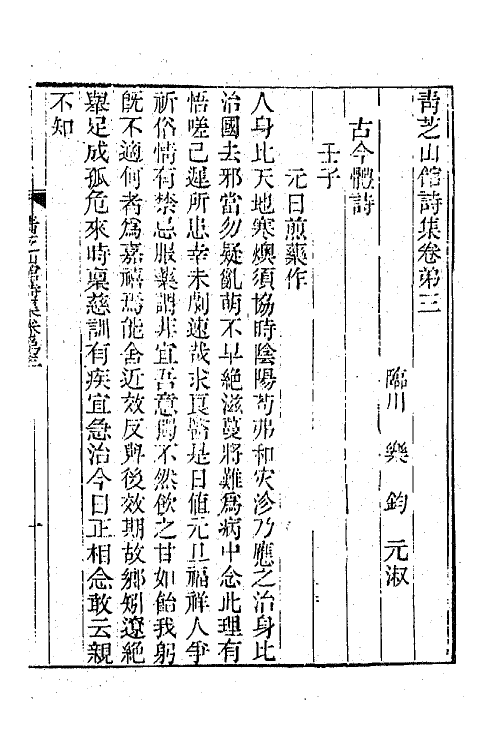 靑芝山館詩集卷第三
臨川 樂鈞 元淑
古今體詩
壬子
元日煎藥作
人身比天地寒燠須協時陰陽苟弗和灾沴乃應之治身比
治國去邪當勿疑亂萌不早絕滋蔓將難爲病中念此理有
悟嗟已遲所患幸未劇速哉求良醫是日値元旦福祥人爭
祈俗情有禁忌服藥謂非宜吾意獨不然飮之甘如飴我躬
旣不適何者爲嘉禧焉能舍近效反與後效期故鄉矧遼絕
舉足成孤危來時稟慈訓有疾宜急治今日正相念敢云親
不知
靑芝山館詩集卷第三
一